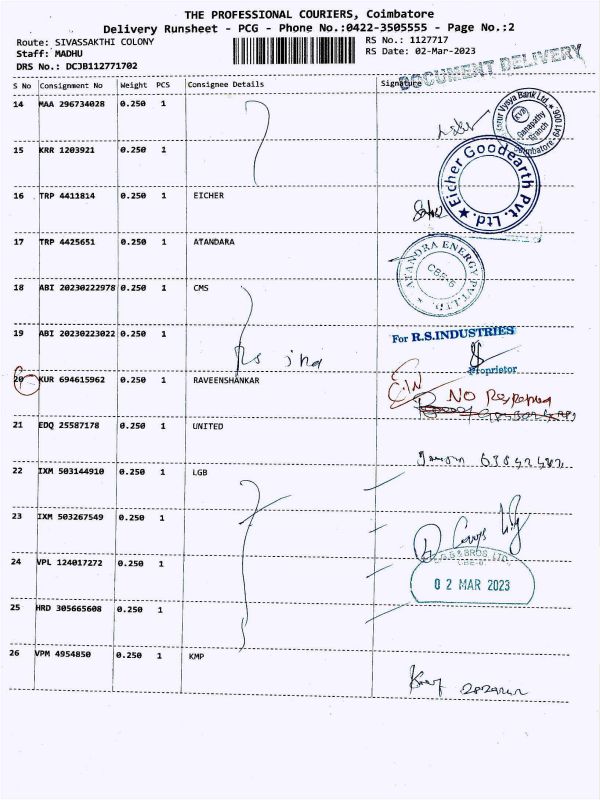 THE PROFESSIONAL COURIERS, Coimbatore
Delivery Runsheet - PCG - Phone No.:0422-3505555 - Page No.:2
Route: SIVASSAKTHI COLONY RS No.: 1127717
Staff: MADHU RS Date: 02-Mar-2023
DRS No.: DCJB112771702
DOCUMENT DELIVERY
S No Consignment No Weight PCS Consignee Details Signature
14 MAA 296734028 0.250 1
Karur Vysya Bank Ltd.
KVB
Ganapathy
Branch
Coimbatore
15 KRR 1203921 0.250 1
Eicher Goodearth Pvt. Ltd.
16 TRP 4411814 0.250 1 EICHER
17 TRP 4425651 0.250 1 ATANDARA
ATANDRA ENERGY PVT. LTD.
CBE-6
18 ABI 20230222978 0.250 1 CMS
19 ABI 20230223022 0.250 1
Rs ind
For R.S.INDUSTRIES
Proprietor
20 KUR 694615962 0.250 1 RAVEENSHANKAR
NO
21 EDQ 25587178 0.250 1 UNITED
22 IXM 503144910 0.250 1 LGB
23 IXM 503267549 0.250 1
24 VPL 124017272 0.250 1
L.G.B & BROS. LTD.
02 MAR 2023
25 HRD 305665608 0.250 1
26 VPM 4954850 0.250 1 KMP